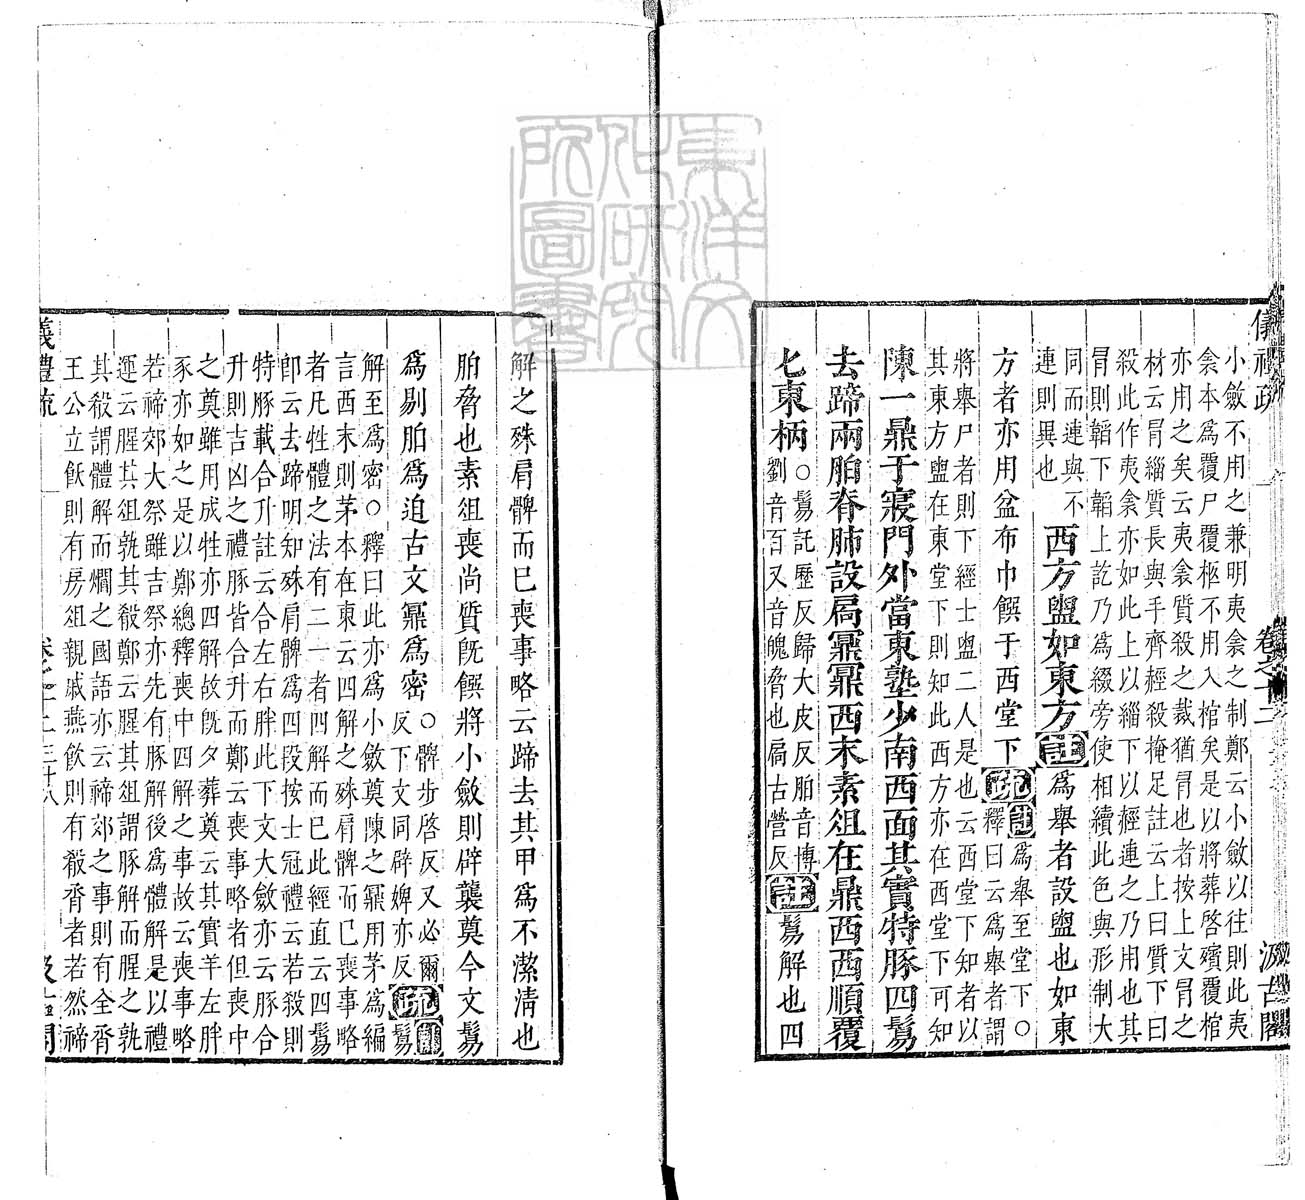 儀禮疏
卷之十二
汲古閣
小斂不用之兼明夷衾之制鄭云小斂以往則此夷
衾本爲覆尸覆柩不用入棺矣是以將葬啓殯覆棺
亦用之矣云夷衾質殺之裁猶冒也者按上文冒之
材云冒緇質長與手齊經殺掩足註云上曰質下曰
殺此作夷衾亦如此上以緇下以經連之乃用也其
冒則韜下韜上訖乃爲綴旁使相續此色與形制大
同而連與不
連則異也
西方盥如東方註爲舉者設盥也如東
方者亦用盆布巾饌于西堂下疏註爲舉至堂下○
釋曰云爲舉者謂
將舉尸者則下經士盥二人是也云西堂下知者以
其東方盥在東堂下則知此西方亦在西堂下可知
陳一鼎于寢門外當東塾少南西面其實特豚四鬄
去蹄兩胉脊肺設扃鼏鼏西末素俎在鼎西西順覆
匕東柄○鬄託歷反歸大皮反胉音博
劉音百又音魄脅也扃古營反註鬄解也四
解之殊肩髀而已喪事略云蹄去其甲爲不潔清也
胉脅也素俎喪尚質旣饌將小斂則辟襲奠今文鬄
爲剔胉爲迫古文鼏爲密○髀步啓反又必爾
反下文同辟婢亦反疏註鬄
解至爲密○釋曰此亦爲小斂奠陳之鼏用茅爲編
言西末則茅本在東云四解之殊肩髀而已喪事略
者凡牲體之法有二一者四解而已此經直云四鬄
卽云去蹄明知殊肩髀爲四段按士冠禮云若殺則
特豚載合升註云合左右胖此下文大斂亦云豚合
升則吉凶之禮豚皆合升而鄭云喪事略者但喪中
之奠雖用成牲亦四解故旣夕葬奠云其實羊左胖
豕亦如之是以鄭總釋喪中四解之事故云喪事略
若禘郊大祭雖吉祭亦先有豚解後爲體解是以禮
運云腥其俎孰其殽鄭云腥其俎謂豚解而腥之孰
其殽謂體解而爓之國語亦云禘郊之事則有全脀
王公立飫則有房俎親戚燕飲則有殽脀者若然禘
儀禮疏
卷之十二
三十八
汲古閣
東洋文化研究所圖書